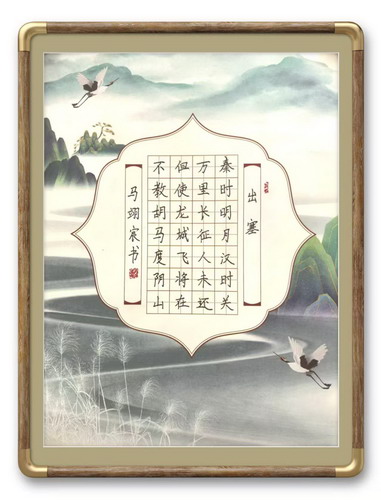 出塞
秦时明月汉时关
万里长征人未还
但使龙城飞将在
不教胡马度阴山
马翊宸书